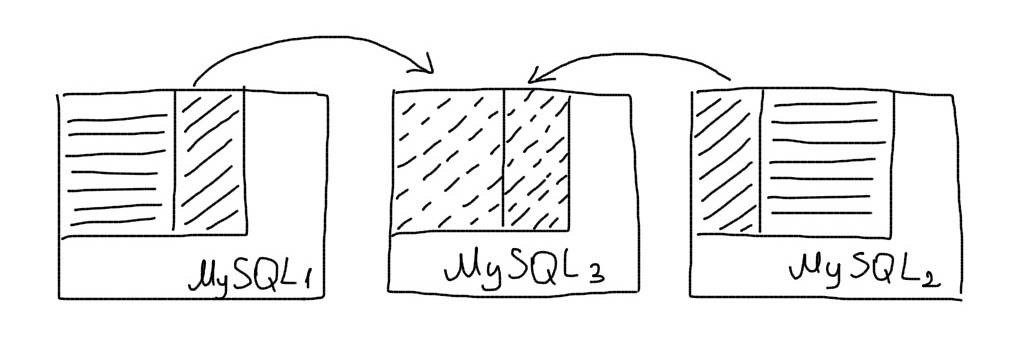 MySQL1
MySQL3
MySQL2